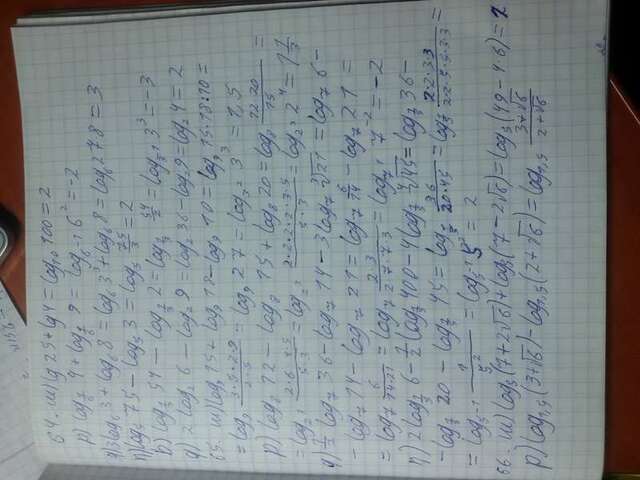 64. ш) lg 25 + lg 4 = log₁₀ 100 = 2
р) log_{1/6} 4 + log_{1/6} 9 = log_{6^{-1}} 6² = -2
q) 3log₆ 3 + log₆ 8 = log₆ 3³ + log₆ 8 = log₆ 27·8 = 3
n) log₅ 75 - log₅ 3 = log₅ 75/3 = 2
b) log_{1/3} 54 - log_{1/3} 2 = log_{1/3} 54/2 = log_{3^{-1}} 3³ = -3
g) 2 log₂ 6 - log₂ 9 = log₂ 36 - log₂ 9 = log₂ 4 = 2
65. ш) log₉ 15 + log₉ 18 - log₉ 10 = log₉ 15·18:10 =
= log₉ (3·5·2·9)/(2·5) = log₉ 27 = log_{3²} 3³ = 1,5
р) log₈ 12 - log₈ 15 + log₈ 20 = log₈ (12·20)/15 =
= log_{2³} (2·6·4·5)/(5·3) = log_{2³} (2·2·2·2·3·5)/(5·3) = log_{2³} 2⁴ = 1 1/3
q) 1/2 log₇ 36 - log₇ 14 - 3log₇ ∛21 = log₇ 6 -
- log₇ 14 - log₇ 21 = log₇ 6/14 - log₇ 21 =
= log₇ 6/(14·21) = log₇ (2·3)/(2·7·7·3) = log₇ 7⁻² = -2
n) 2log_{1/5} 6 - 1/2 log_{1/5} 400 - 4log_{1/5} ∜45 = log_{1/5} 36 -
- log_{1/5} 20 - log_{1/5} 45 = log_{1/5} 36/(20·45) = log_{1/5} (2·2·3·3)/(2·2·5·5·3·3) =
= log_{5^{-1}} 1/5² = log_{5^{-1}} 5⁻² = 2
66. ш) log₅(7+2√6) + log₅(7-2√6) = log₅(49-4·6) = 2
р) log₁,₅(3+√6) - log₁,₅(2+√6) = log₁,₅ (3+√6)/(2+√6)